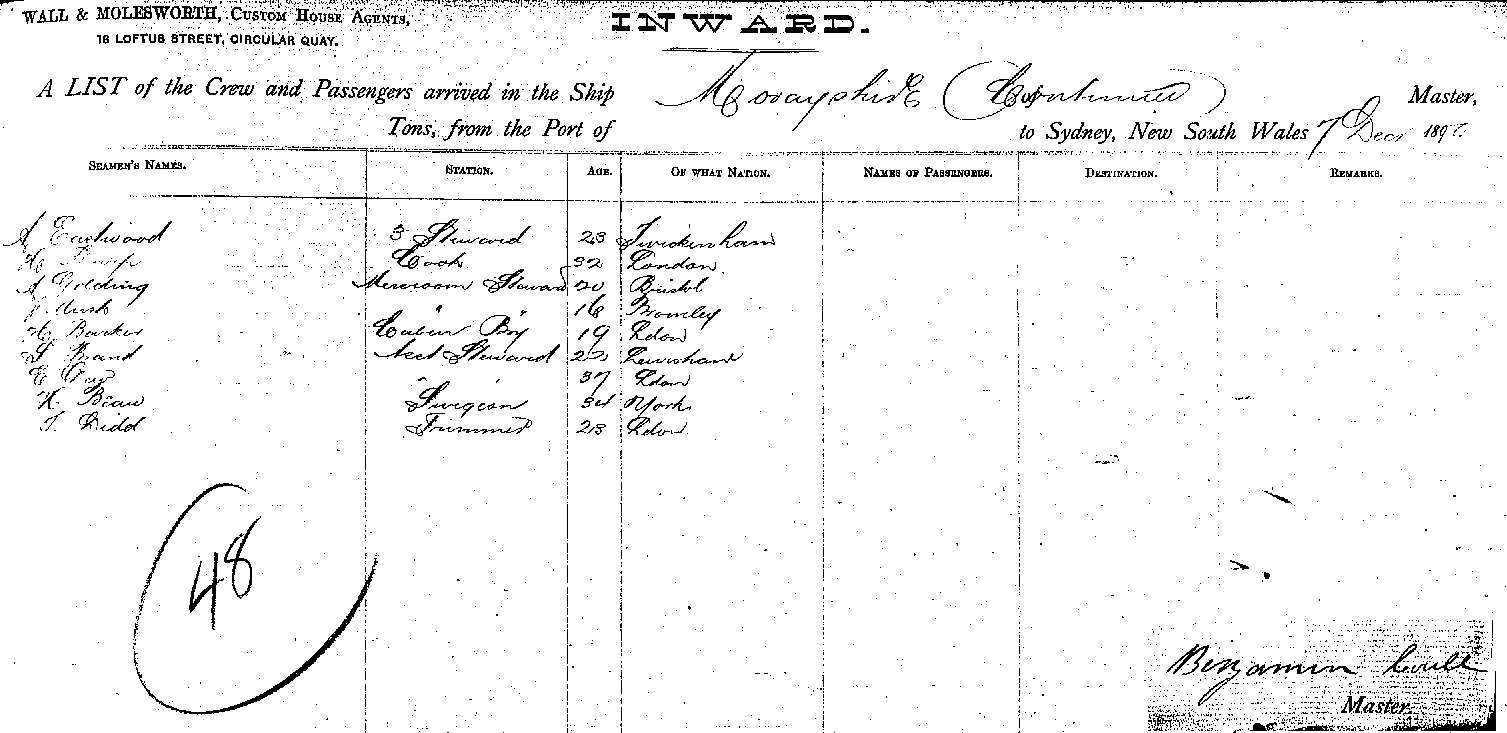 WALL & MOLESWORTH, CUSTOM HOUSE AGENTS,
16 LOFTUS STREET, CIRCULAR QUAY.
INWARD.
A LIST of the Crew and Passengers arrived in the Ship Morayshire (Continued) Master,
Tons, from the Port of to Sydney, New South Wales 7 Decr 189
SEAMEN'S NAMES. STATION. AGE. OF WHAT NATION. NAMES OF PASSENGERS. DESTINATION. REMARKS.
A Eastwood 3 Steward 23 Twickenham
Cook 32 London
A Golding Messroom Steward 20 Bristol
" " 16 Bromley
H. Barker Cabin Boy 19 Ldon
Brand Asst Steward 22 Lewisham
" 37 Ldon
H. Bean Surgeon 34 York
T. Didd Trimmer 23 Ldon
48
Benjamin Coull
Master.